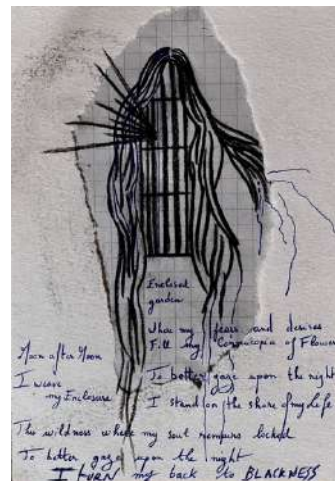 Enclosed
garden
Where my fears and desires
Fill my Cornucopia of Flowers
Moon after Moon
I weave
my Enclosure
To better gaze upon the night
I stand on the shore of my life
The wildness where my soul remains locked
To better gaze upon the night
I TURN my back to BLACKNESS